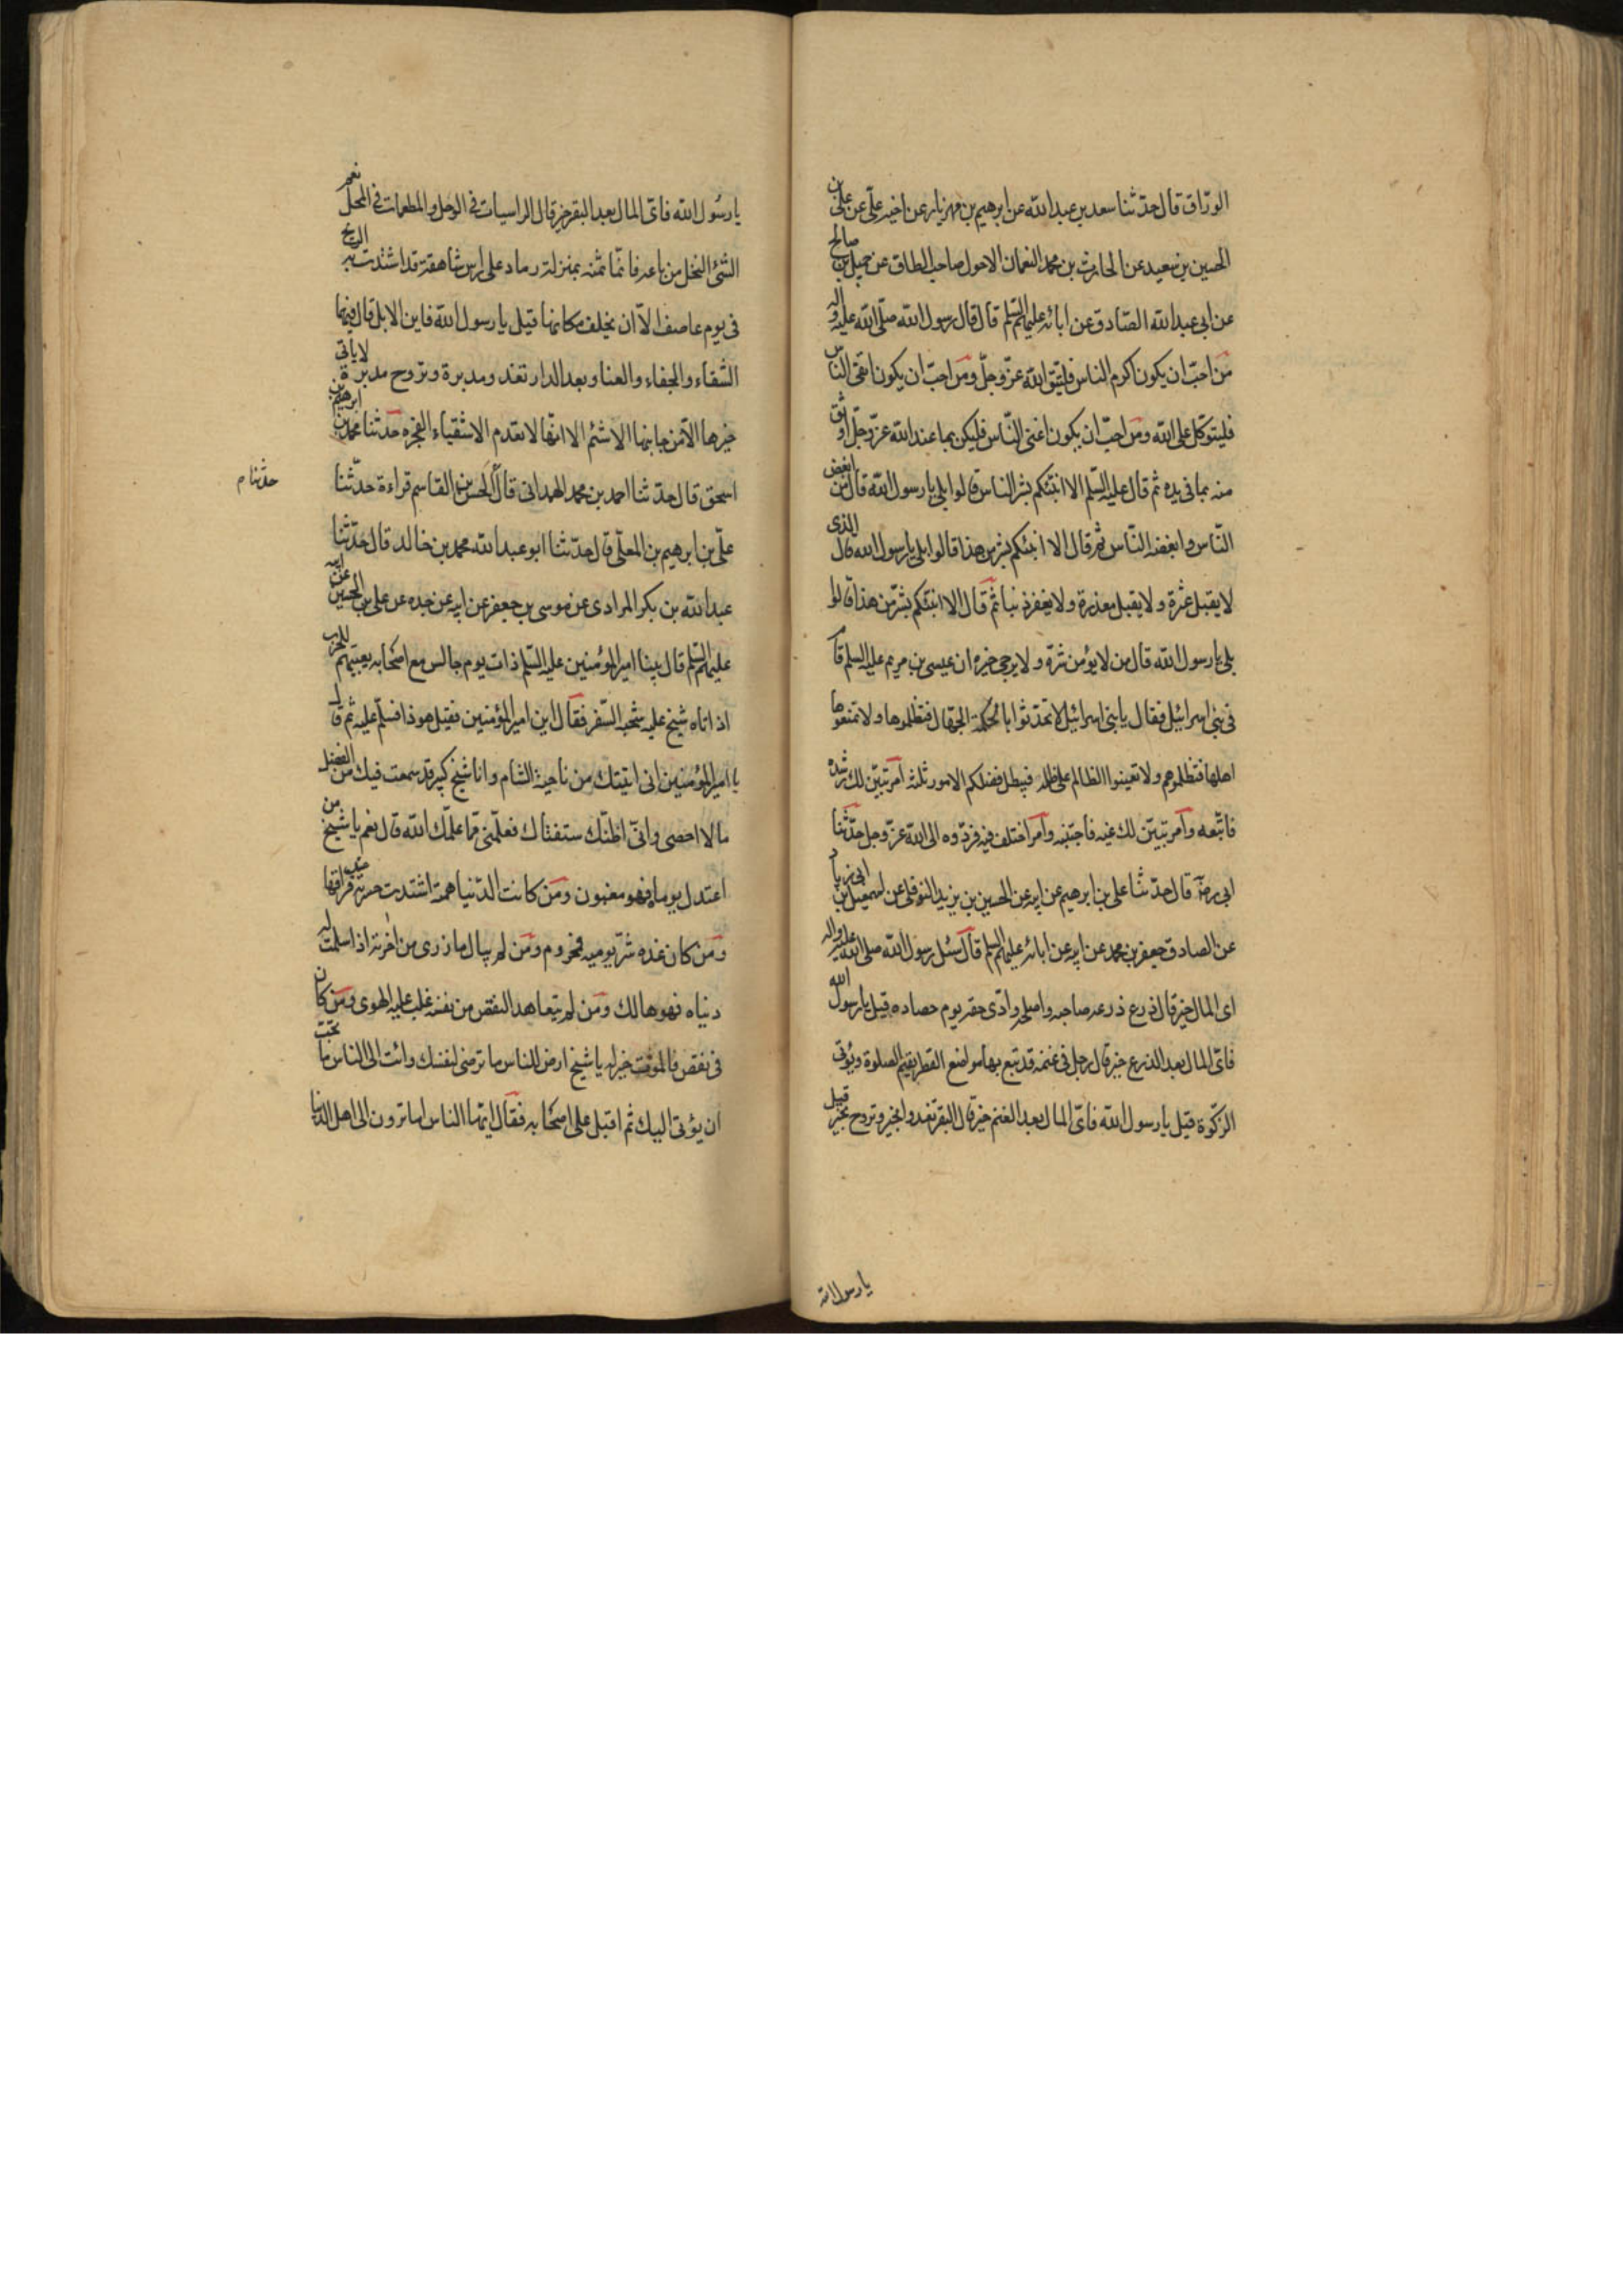 الورّاق قال حدّثنا سعد بن عبد الله عن ابرهيم بن مهزيار عن اخيه علىّ عن على بن
الحسين بن سعيد عن الحارث بن محمد النعمان الاحول صاحب الطاق عن جميل بن صالح
عن ابى عبد الله الصّادق عن ابائه عليهم السّلم قال قال رسول الله صلّى الله عليه واله
مَن احبّ ان يكون اكرم الناس فليتق الله عزّ وجلّ ومَن احبّ ان يكون اتقى النّاس
فليتوكّل على الله ومَن احبّ ان يكون اغنى النّاس فليكن بما عند الله عزّ وجلّ اوثق
منه بما فى يده ثم قال عليه السّلم الا انبّئكم بشر الناس قالوا بلى يا رسول الله قال مَن ابغض
النّاس وابغضه النّاس ثم قال الا انبئكم بشرّ من هذا قالوا بلى يا رسول الله قال الذى
لا يقبل عثرة ولا يقبل معذرة ولا يغفر ذنبا ثم قال الا انبئكم بشرّ من هذا قالوا
بلى يا رسول الله قال من لا يؤمن شرّه ولا يرجى خيره ان عيسى بن مريم عليه السلم قام
فى بنى اسرائيل فقال يا بنى اسرائيل لا تحدّثوا بالحكمة الجهّال فتظلموها ولا تمنعوها
اهلها فتظلموهم ولا تعينوا الظالم على ظلمه فيبطل فضلكم الامور ثلثة امر تبيّن لك رشده
فاتّبعه وامر تبيّن لك غيّه فاجتنبه وامر اختلف فيه فردّوه الى الله عزّ وجل حدّثنا
ابى رضه قال حدّثنا على بن ابرهيم عن ابيه عن الحسين بن يزيد النوفلى عن اسمعيل بن ابى زياد
عن الصادق جعفر بن محمد عن ابيه عن ابائه عليهم السلم قال سئل رسول الله صلى الله عليه واله
اى المال خير قال زرع زرعه صاحبه واصلحه وادّى حقه يوم حصاده قيل يا رسول الله
فاىّ المال بعد الزرع خير قال رجل فى غنمه قد تبع بها مواضع القطر يقيم الصلوة ويؤتى
الزكوة قيل يا رسول الله فاىّ المال بعد الغنم خير قال البقر تغدوا بخير وتروح بخير قيل
يا رسول الله
يا رسُول الله فاىّ المال بعد البقر خير قال الراسيات فى الوحل والمطعمات فى المحل نعم
الشّئ النخل من باعه فانّما ثمنه بمنزلة رماد على راس شاهقة قد اشتدت به الريح
فى يوم عاصف الّا ان يخلف مكانها قيل يا رسول الله فاين الابل قال فيها
الشّقاء والجفاء والعنا وبعد الدار تغدو مدبرة وتروح مدبرة لا ياتى
خيرها الّا من جانبها الاشئم الا انها لا تعدم الاشقياء الفجره حَدّثنا محمد بن ابرهيم بن
اسحق قال حدّثنا احمد بن محمد الهمدانى قال الحسن بن القاسم قراءة حدّثنا
حدثنا م
علىّ بن ابرهيم بن المعلّى قال حدّثنا ابو عبد الله محمد بن خالد قال حَدّثنا
عبد الله بن بكر المرادى عن موسى بن جعفر عن ابيه عن جده عن على بن الحسين عن ابيه
عليهم السّلم قال بينا امير المؤمنين عليه السّلم ذات يوم جالس مع اصحابه يعبّيهم للحرب
اذ اتاه شيخ عليه شحبة السّفر فقال اين امير المؤمنين فقيل هوذا فسلّم عليه ثم قال
يا امير المؤمنين انى اتيتك من ناحية الشام وانا شيخ كبير قد سمعت فيك من الفضل
ما لا احصى وانّى اظنّك ستغتال فعلّمنى ممّا علمّك الله قال نعم يا شيخ من
اعتدل يوماه فهو مغبون ومَن كانت الدّنيا همته اشتدت حسرته عند فراقها
ومَن كان غده شرّ يوميه فمحروم ومَن لم يبال ما زرى من اخرته اذا سلمت له
دنياه فهو هالك ومَن لم يتعاهد النقص من نفسه غلب عليه الهوى ومَن كان
فى نقص فالموت خير له يا شيخ ارض للناس ما ترضى لنفسك وائت الى الناس ما تحبّ
ان يؤتى اليك ثم اقبل على اصحابه فقال ايّها الناس اما ترون الى اهل الدنيا